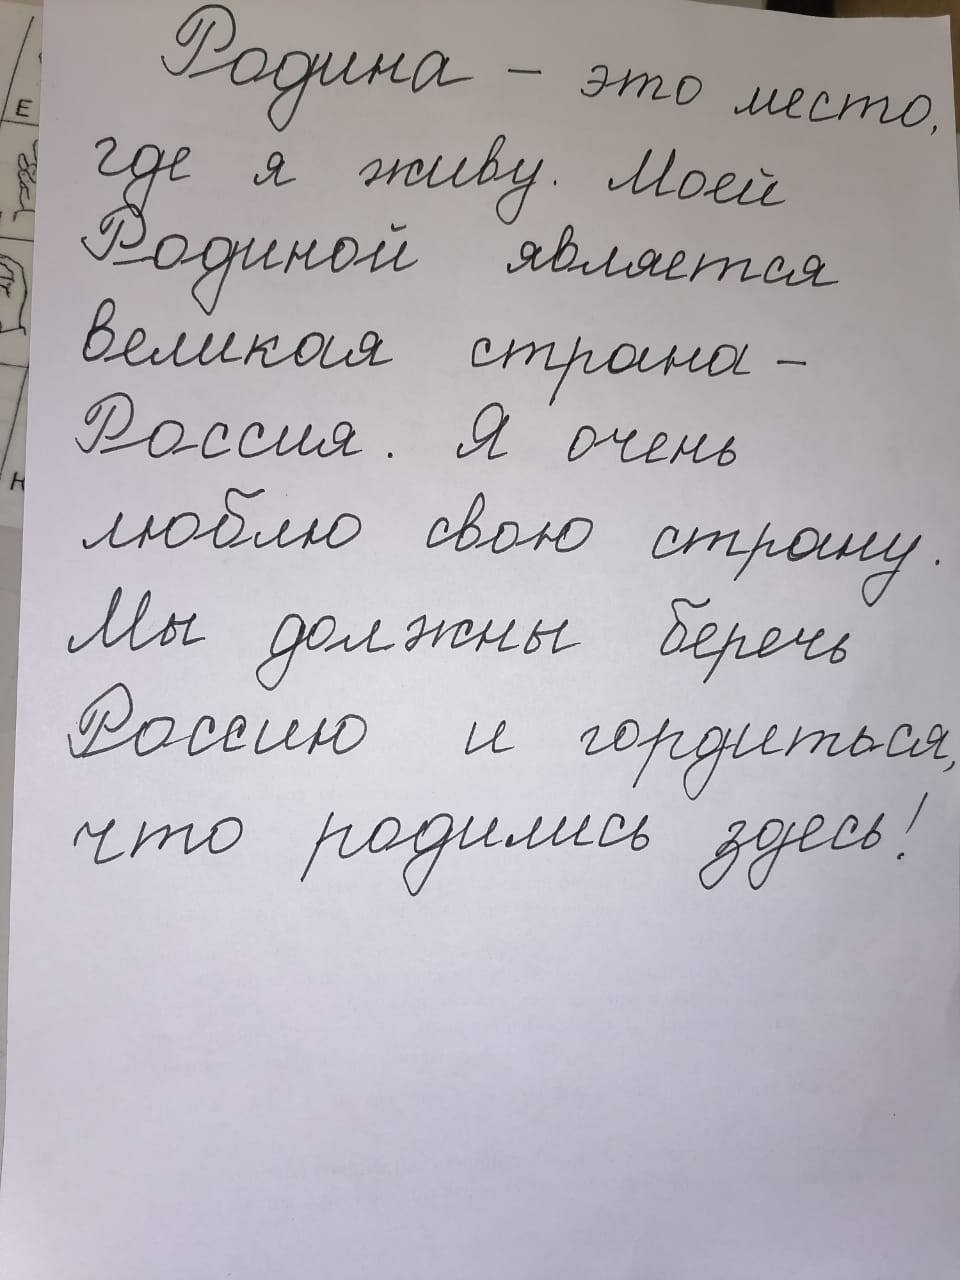 Родина - это место,
где я живу. Моей
Родиной является
великая страна -
Россия. Я очень
люблю свою страну.
Мы должны беречь
Россию и гордиться,
что родились здесь!
Е
Н